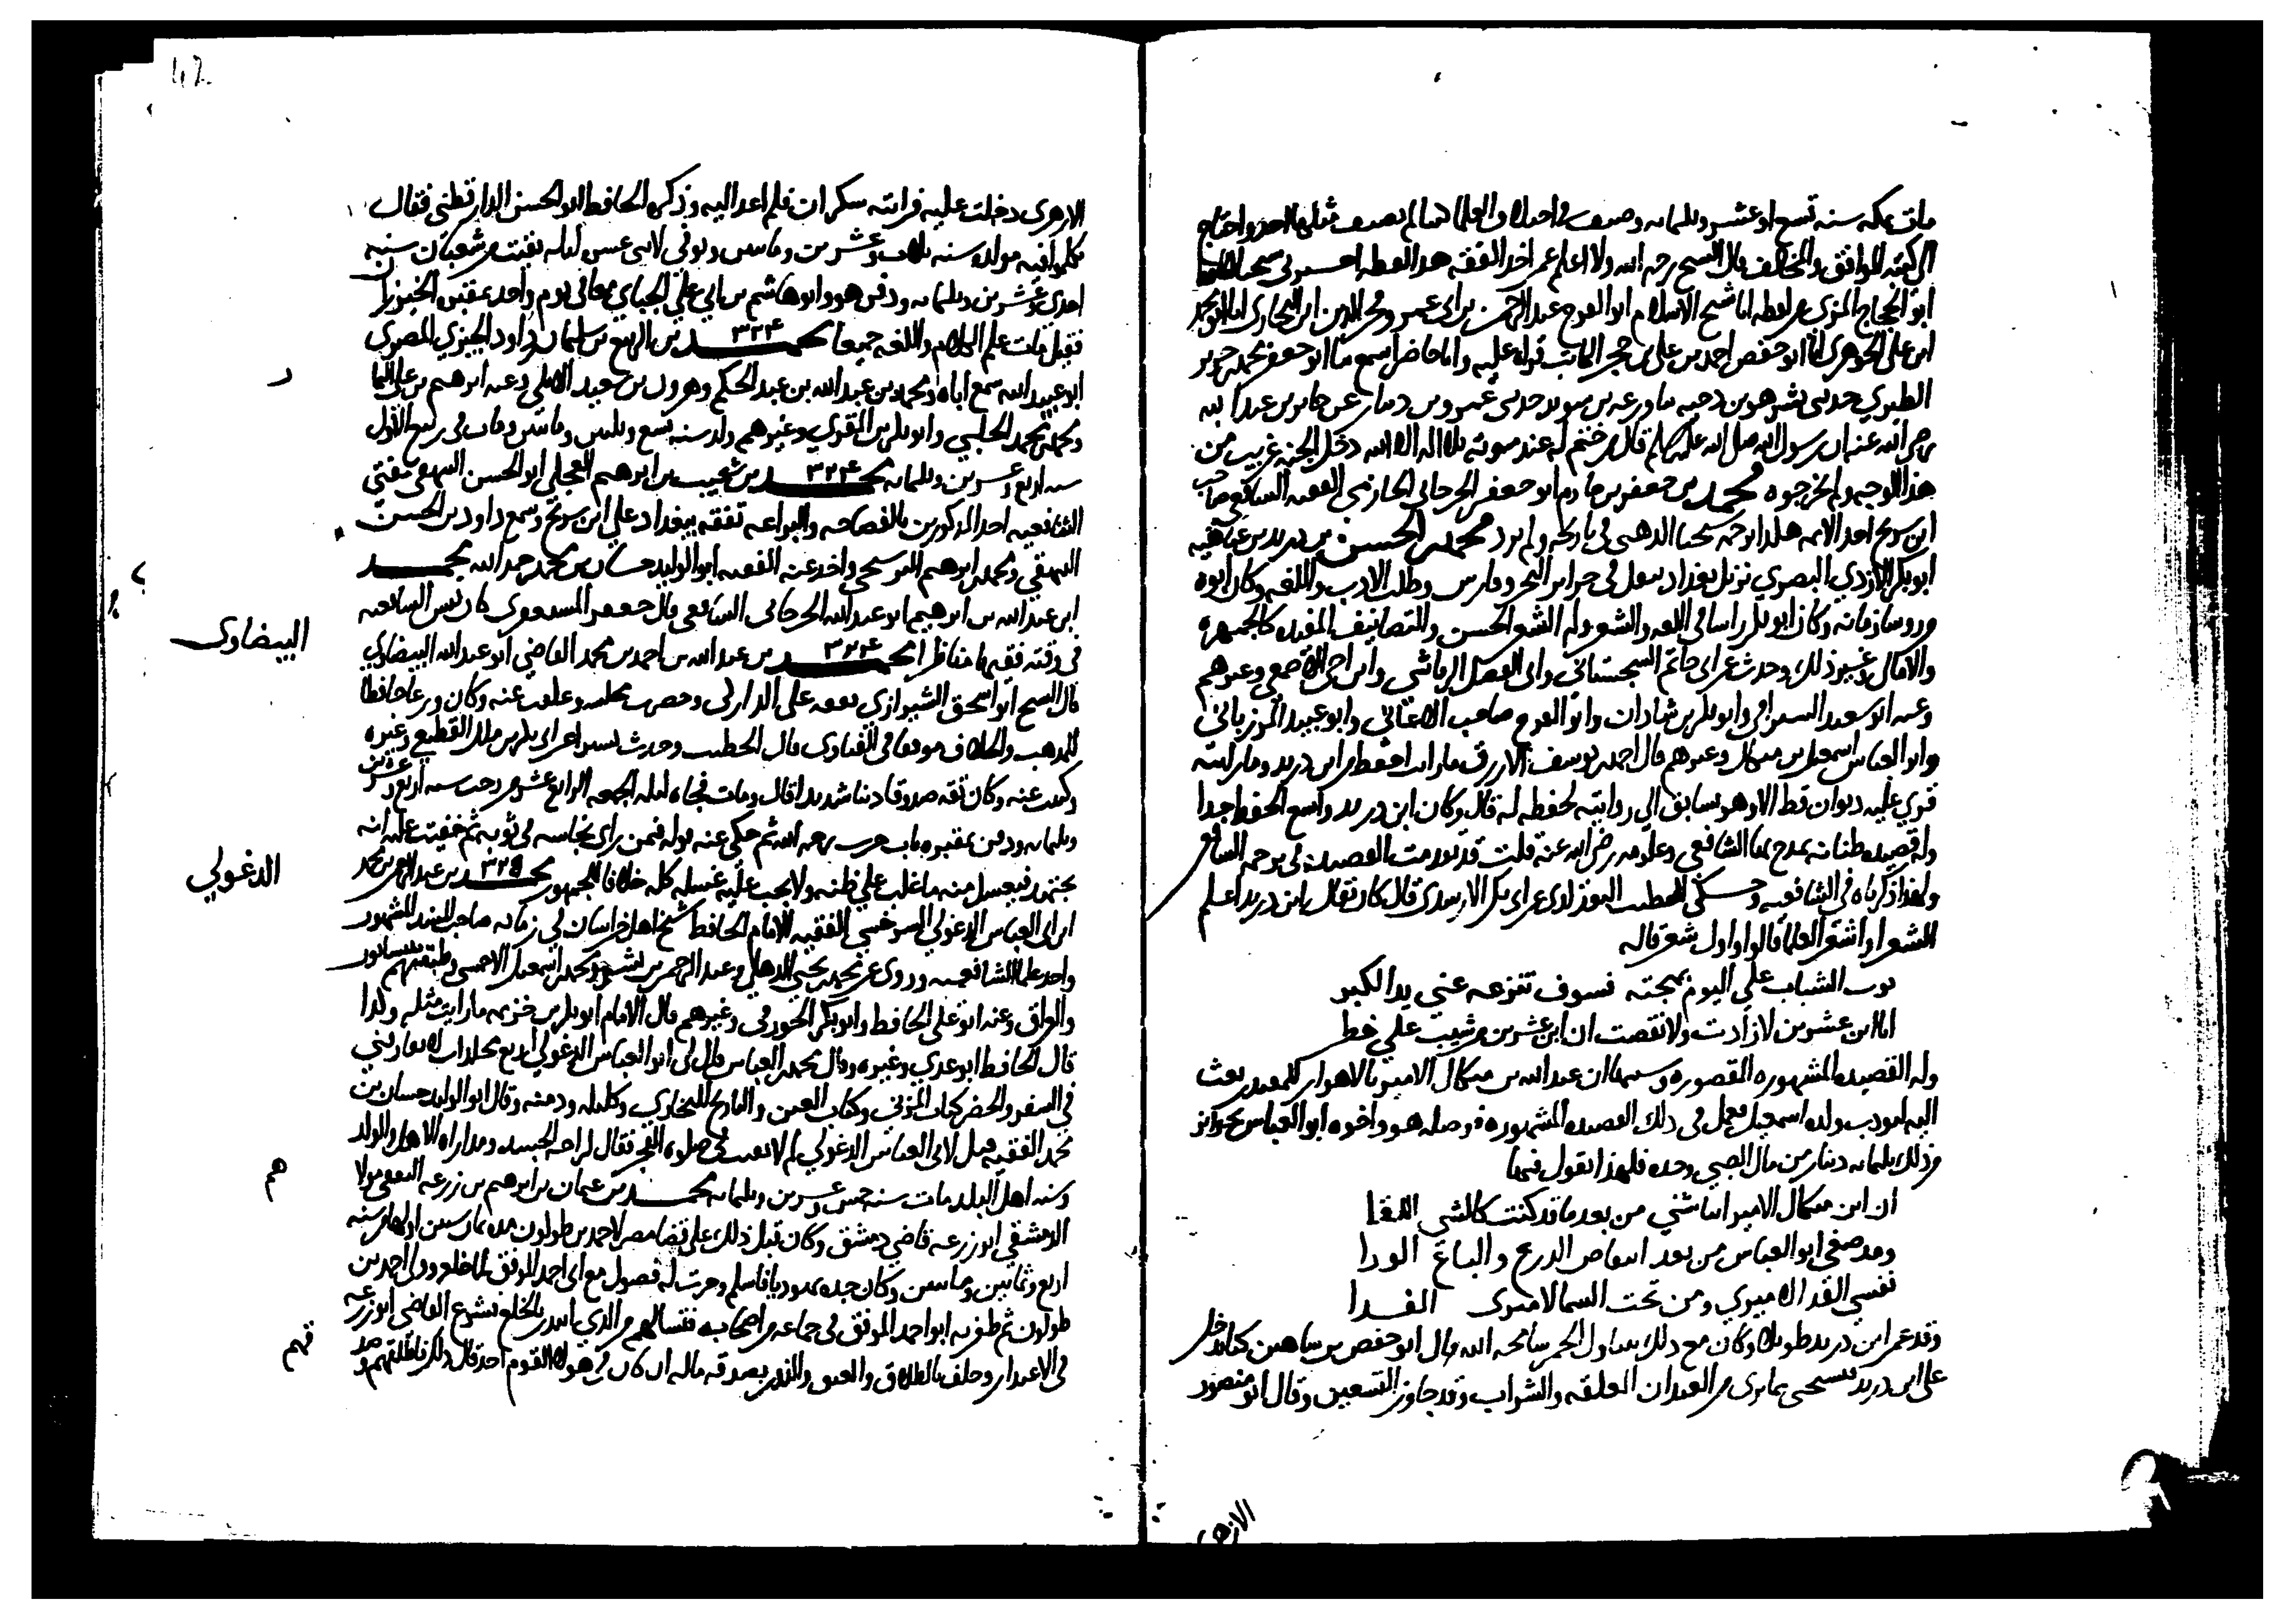 مات بمكه سنه تسع او عشر وثلثمايه وصنف في اختلاف العلما كتبا لم يصنف مثلها احد واحتاج
الى كتبه الموافق والمخالف قال الشيخ رحمه الله ولا اعلم عمن اخذ الفقه هذا لفظه اخبرني شيخنا الحافظ
ابو الحجاج المزي من لفظه انا شيخ الاسلام ابو الفرج عبد الرحمن بن ابي عمر وفخر الدين ابن البخاري
ابن علي الجوهري انا ابو حفص احمد بن علي بن حجر الكاتب قراه عليه وانا حاضر اسمع نا ابو جعفر محمد بن جرير
الطبري حدثني بشر هو بن دحيه
رضي الله عنه ان رسول الله صلى الله عليه وسلم قال من ختم له عند موته بلا اله الا الله دخل الجنه غريب من
هذا الوجه ولم يخرجوه محمد بن جعفر بن خازم ابو جعفر الجرجاني الخازمي الفقيه الشافعي صاحب
ابن سريج احد الايمه هكذا ترجمه شيخنا الذهبي في تاريخه ولم يزد محمد بن الحسن بن دريد بن عتاهيه
ابو بكر الازدي البصري نزيل بغداد تنقل في جزاير البحر وفارس وطلب الادب واللغه وكان ابوه
من روسا زمانه وكان ابو بكر راسا في اللغه والشعر وله الشعر الحسن والتصانيف المفيده كالجمهره
والامالي وغير ذلك وحدث عن ابي حاتم السجستاني وابي الفضل الرياشي وابن اخي الاصمعي وغيرهم
وعنه ابو سعيد السيرافي وابو بكر بن شاذان وابو الفرج صاحب الاغاني وابو عبيد المرزباني
وابو العباس اسمعيل بن ميكال وغيرهم قال احمد بن يوسف الازرق ما رايت احفظ من ابن دريد وما رايته
قري عليه ديوان قط الا وهو يسابق الى روايته لحفظه له قال وكان ابن دريد واسع الحفظ جدا
وله قصيده طنانه يمدح بها الشافعي وعلومه رضي الله عنه قلت قد تقدمت القصيده في ترجمه الشافعي
ولهذا ذكرناه في الشافعيه وحكى الخطيب البغدادي عن ابي بكر الاسدي قال كان يقال ابن دريد اعلم
الشعرا واشعر العلما قالوا واول شعر قاله
ثوب الشباب علي اليوم بهجته فسوف تنزعه عني يد الكبر
انا ابن عشرين لا زادت ولا نقصت ان ابن عشرين من شيب على خطر
وله القصيده المشهوره المقصوره وسببها ان عبد الله بن ميكال الامير بالاهواز للمقتدر بعث
اليه ليودب ولده اسمعيل فعمل في ذلك القصيده المشهوره فوصله هو واخوه ابو العباس بجوايز
من ذلك ثلثمايه دينار من مال الصبي وحده فلهذا يقول فيها
ان ابن ميكال الامير انتاشني من بعد ما قد كنت كالشي اللقا
ومد ضبعي ابو العباس من بعد انقباض الذرع والباع الوزا
نفسي الفدا لاميري ومن تحت السما لاميري الفدا
وقد عمر ابن دريد طويلا وكان مع ذلك يتناول الخمر سامحه الله قال ابو حفص بن شاهين كنا ندخل
على ابن دريد فنستحي مما نرى من العيدان المعلقه والشراب وقد جاوز التسعين وقال ابو منصور
الازهري
42
الازهري دخلت عليه فرايته سكران فلم اعد اليه وذكره الحافظ ابو الحسن الدارقطني فقال
تكلموا فيه مولده سنه ثلاث وعشرين ومايتين وتوفي لاثنتي عشره ليله بقيت من شعبان سنه
احدى وعشرين وثلثمايه ودفن هو وابو هاشم بن ابي علي الجباي معا في يوم واحد بمقبره الخيزران
فقيل مات علم الكلام واللغه جميعا محمد ٣٢٤ بن الربيع بن سليمان بن داود الجيزي المصري
ابو عبيد الله سمع اباه ومحمد بن عبد الله بن عبد الحكم وهرون بن سعيد الايلي وعنه ابرهيم بن علي التمار
ومحمد بن محمد الحلبي وابو بكر بن المقري وغيرهم ولد سنه تسع وثلثين ومايتين ومات في ربيع الاول
سنه اربع وعشرين وثلثمايه محمد ٣٢٤ بن شعيب بن ابرهيم العجلي ابو الحسن البيهقي مفتي
الشافعيه احد المذكورين بالفصاحه والبراعه تفقه ببغداد علي ابن سريج وسمع داود بن الحسين
البيهقي ومحمد بن ابرهيم البوسنجي واخذ عنه الفقيه ابو الوليد حسان بن محمد رحمه الله محمد
ابن عبد الله بن ابرهيم ابو عبد الله الجرجاني الشافعي قال جعفر المستغفري كان رئيس الشافعيه
في وقته فقيها مناظرا محمد ٣٢٤ بن عبد الله بن احمد بن محمد القاضي ابو عبد الله البيضاوي
البيضاوى
قال الشيخ ابو اسحق الشيرازي تفقه على الداركي وحضرت مجلسه وعلقت عنه وكان ورعا حافظا
للمذهب والخلاف موفقا في الفتاوى قال الخطيب وحدث بيسير عن ابي بكر بن مالك القطيعي وغيره
وكتبت عنه وكان ثقه صدوقا دينا شديدا قال ومات فجاه ليله الجمعه الرابع عشر من رجب سنه اربع وعشرين
وثلثمايه ودفن بمقبره باب حرب رحمه الله ثم حكي عنه قوله فيمن راى نجاسه في ثوبه ثم خفيت عليه انه
يجتهد فيغسل منه ما غلب على ظنه ولا يجب عليه غسله كله خلافا للجمهور محمد ٣٢٥ بن عبد الرحمن بن محمد
الدغولي
ابن ابي العباس الدغولي السرخسي الفقيه الامام الحافظ شيخ اهل خراسان في زمانه صاحب المسند المشهور
واحد علما الشافعيه وروى عن محمد بن يحيى الذهلي وعبد الرحمن بن بشر ومحمد بن اسمعيل الاحمسي وطبقتهم بنيسابور
والعراق وعنه ابو علي الحافظ وابو بكر الجوزقي وغيرهم قال الامام ابو بكر بن خزيمه ما رايت مثله وكذا
قال الحافظ ابو عدي وغيره وقال محمد بن العباس قال لي ابو العباس الدغولي اربع مجلدات لا تفارقني
في السفر والحضر كتاب المزني وكتاب العين والتاريخ للبخاري وكليله ودمنه وقال ابو الوليد حسان بن
محمد الفقيه قيل لابي العباس الدغولي لم لا تقنت في صلوه الفجر فقال لراحه الجسد ومداراه الاهل والولد
وسنه اهل البلد مات سنه خمس وعشرين وثلثمايه محمد بن عثمان بن ابرهيم بن زرعه الثقفي مولاهم
الدمشقي ابو زرعه قاضي دمشق وكان قبل ذلك على قضا مصر لاحمد بن طولون مده ثمان سنين اولها سنه
اربع وثمانين ومايتين وكان جده يهوديا فاسلم وجرت له فصول مع ابي احمد الموفق لما خلعه ووالى احمد بن
طولون ثم ظفر به ابو احمد الموفق في جماعه من اصحابه فسالهم من الذي ابتدر بالخلع فشرع القاضي ابو زرعه
في الاعتذار وحلف بالطلاق والعتق والنذر بصدقه ماله ان كان في هولاء القوم احد قال ذلك فاطلقهم